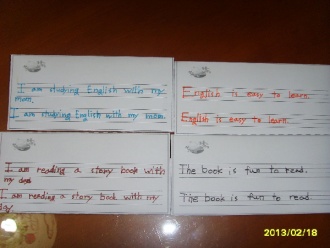 I am studying English with my
mom.
I am studying English with my mom.
English is easy to learn.
English is easy to learn.
I am reading a story book with
my dad
I am reading a story book with
my
The book is fun to read.
The book is fun to read.
2013/02/18